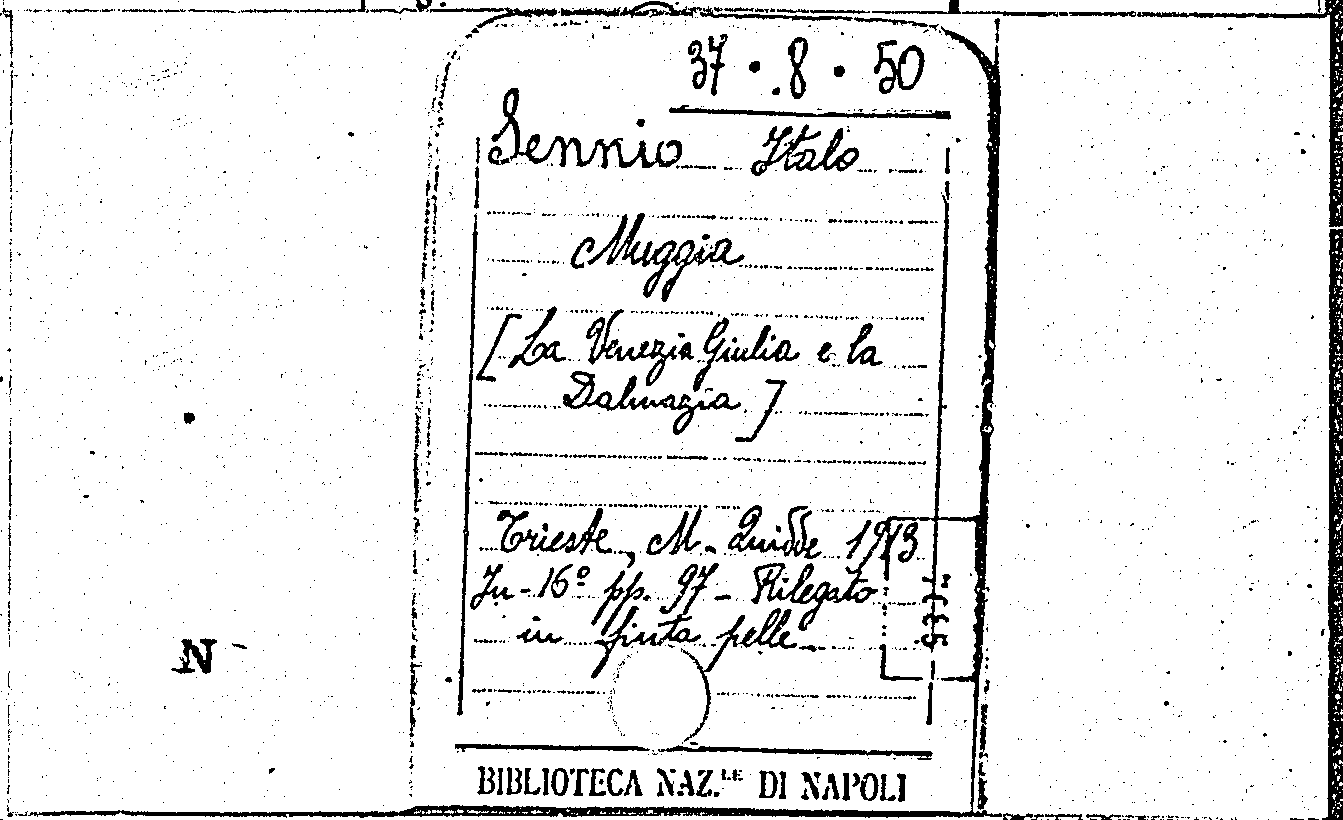 37 . 8 . 50
Sennio Italo
Muggia
[La Venezia Giulia e la
Dalmazia]
Trieste, M. Quidde 1913
In-16º pp. 97 - Rilegato
in finta pelle.
N
BIBLIOTECA NAZ.LE DI NAPOLI